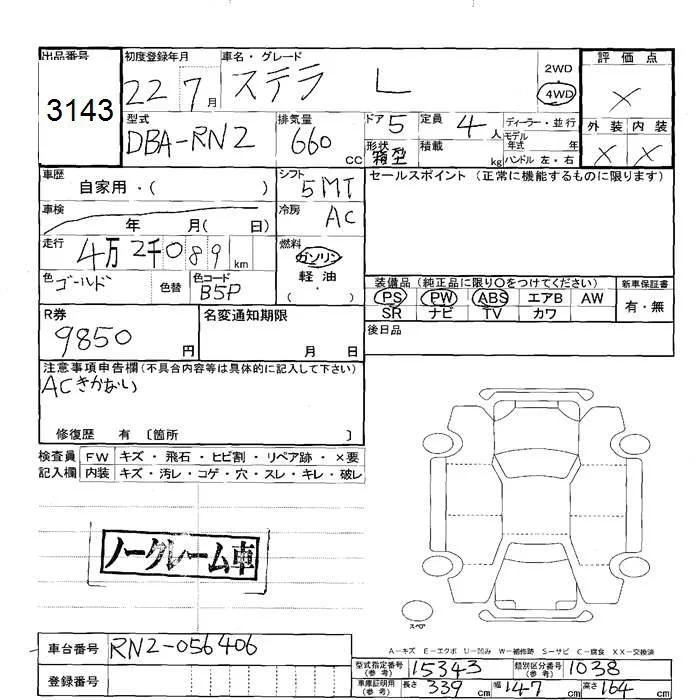 出品番号 初度登録年月 車名・グレード 2WD 評価点
3143 22 7月 ステラ L 4WD X
型式 排気量 ドア 定員 ディーラー・並行 外装 内装
DBA-RN2 660 cc 5 4人 モデル年式 年 X X
形状 箱型 積載 kg ハンドル 左・右
車歴 シフト セールスポイント (正常に機能するものに限ります)
自家用・( ) 5MT
車検 冷房
年 月( 日) AC
走行 燃料
4万2千089km ガソリン
軽油
( )
色 ゴールド 色替 色コード B5P
装備品 (純正品に限り○をつけてください) 新車保証書
PS PW ABS エアB AW 有・無
SR ナビ TV カワ
R券 名変通知期限 後日品
9850円 月 日
注意事項申告欄(不具合内容等は具体的に記入して下さい)
ACきかない
修復歴 有 〔箇所 〕
検査員 FW キズ・飛石・ヒビ割・リペア跡・×要
記入欄 内装 キズ・汚レ・コゲ・穴・スレ・キレ・破レ
ノークレーム車
スペア
A―キズ E―エクボ U―凹み W―補修跡 S―サビ C―腐食 XX―交換済
車台番号 RN2-056406
登録番号
型式指定番号(参考) 15343 類別区分番号(参考) 1038
車庫証明用(参考) 長さ 339cm 幅 147cm 高さ 164cm